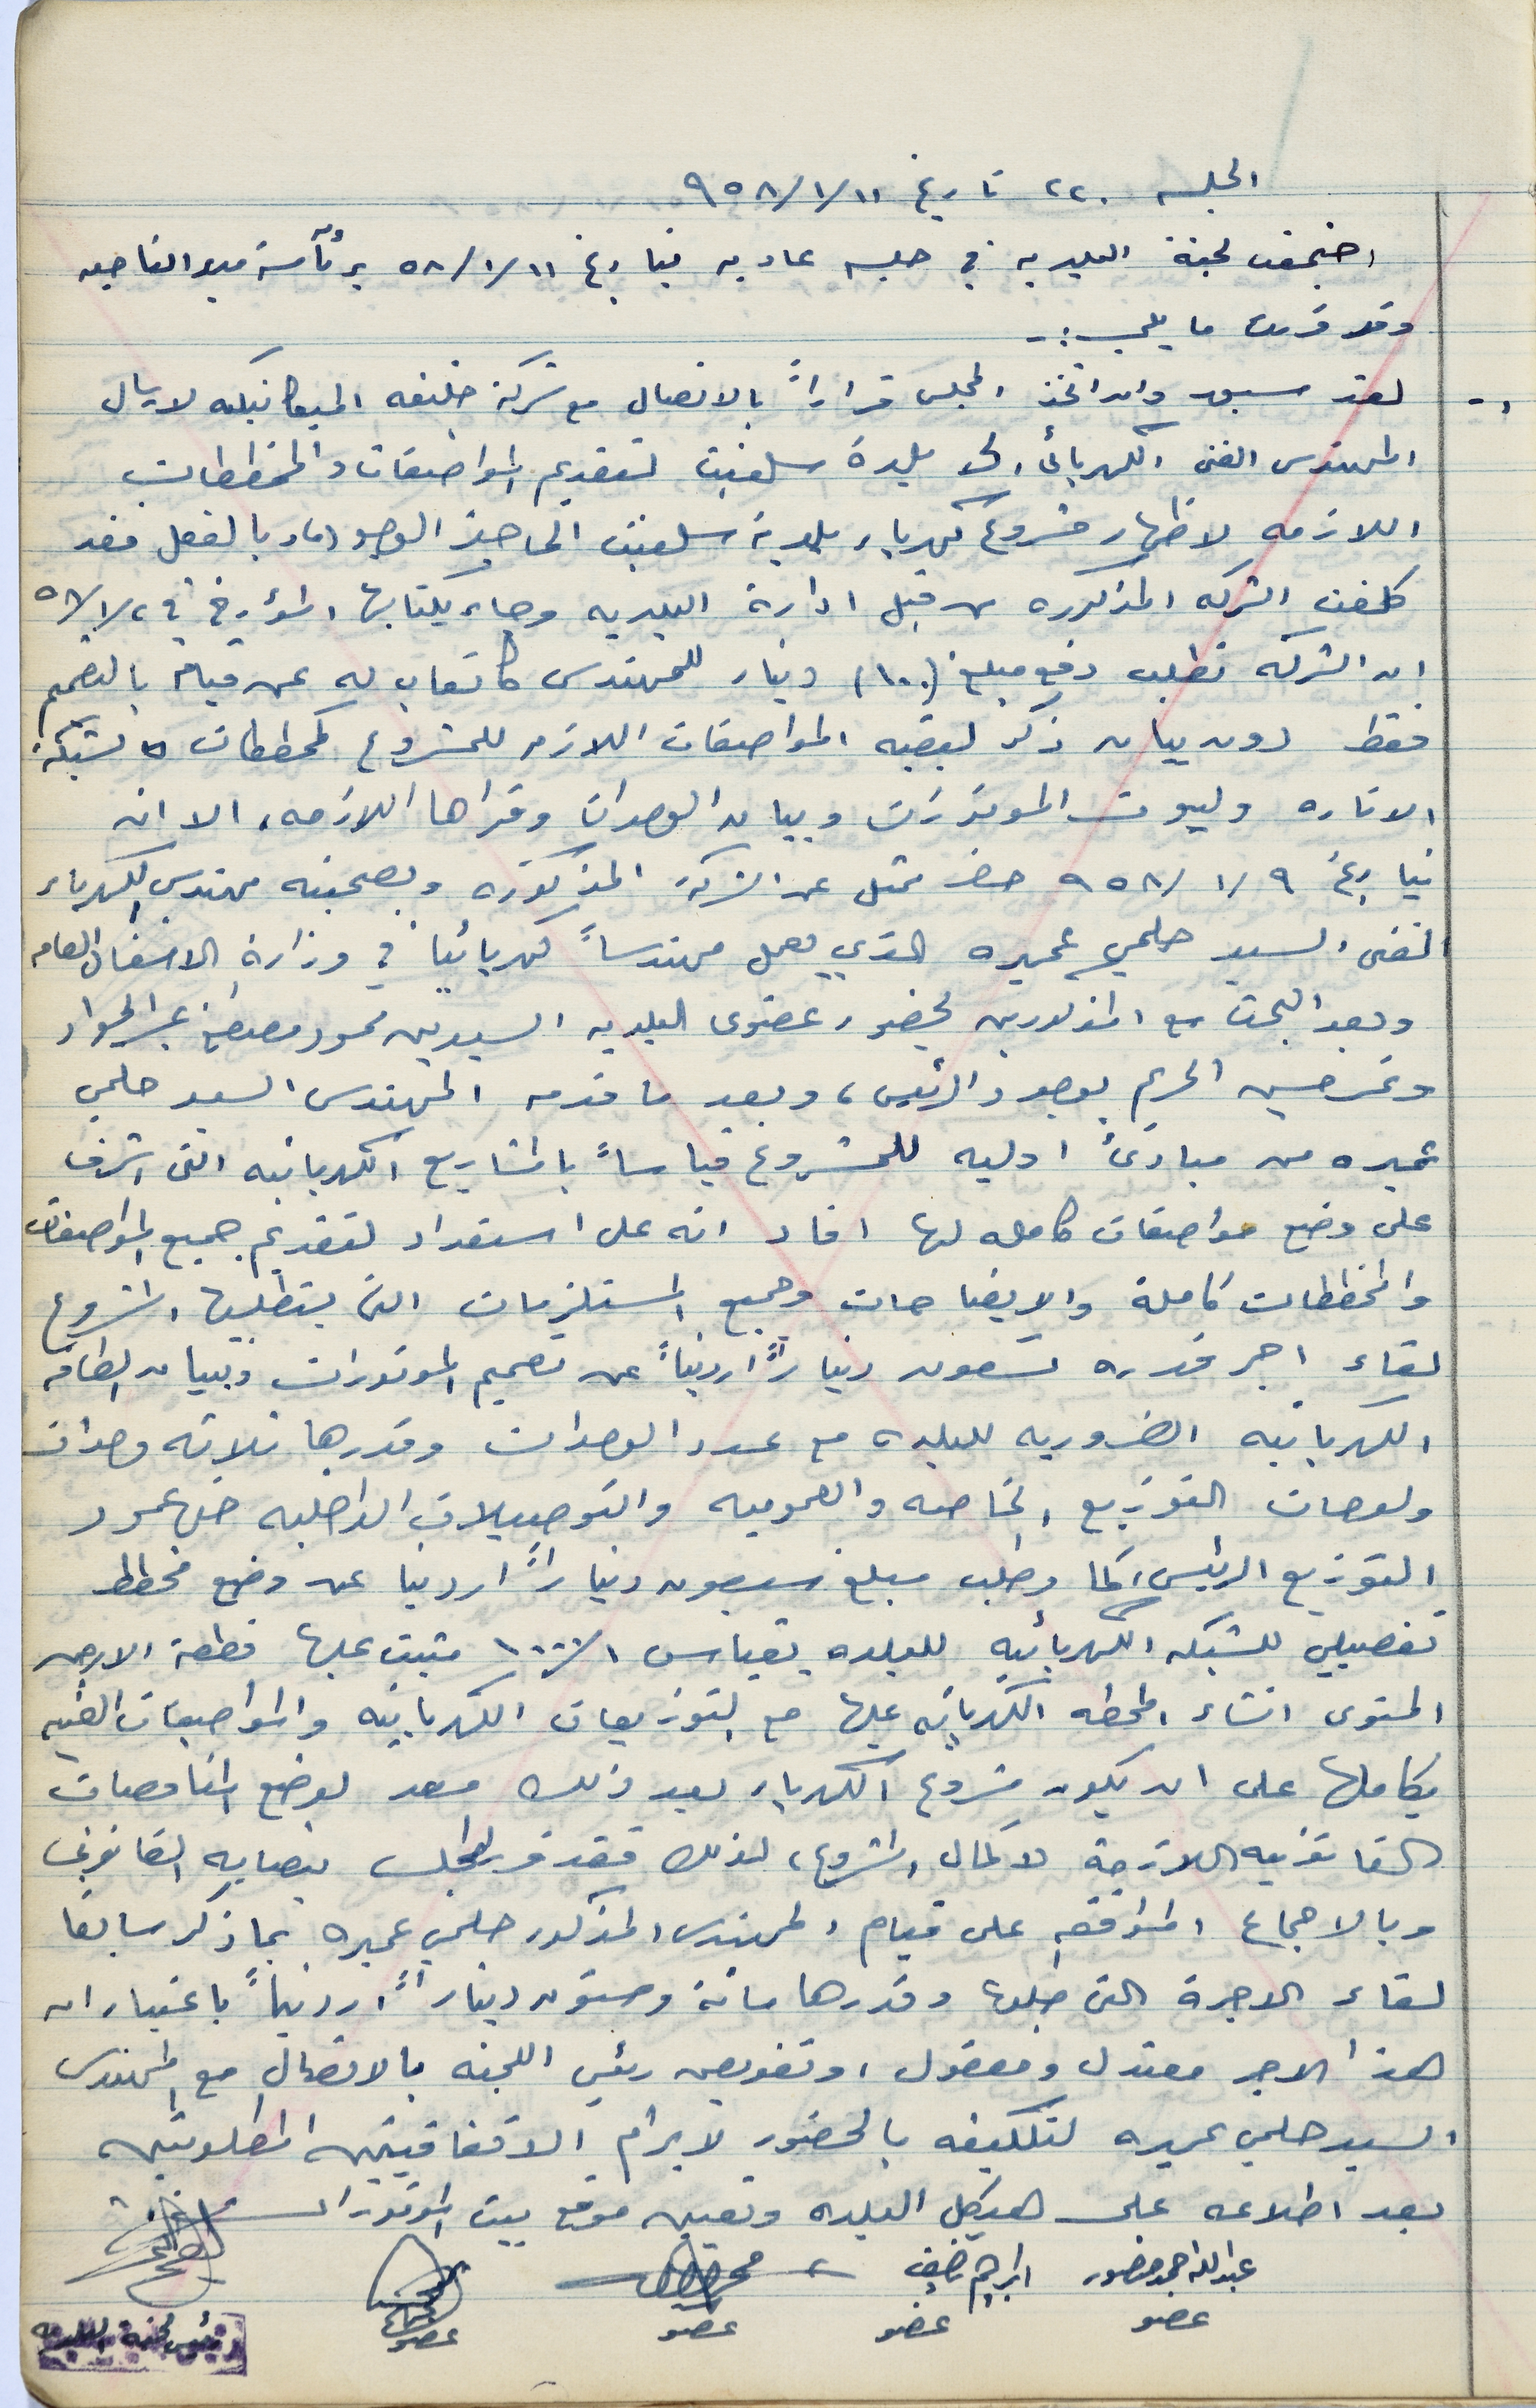 الجلسه ٢٢٠ تاريخ ٩٥٨/١/١١
اجتمعت لجنة البلديه في جلسه عاديه بتاريخ ٥٨/١/١١ برئآسة مدير الناحيه
وقد قررت ما يلي :-
١- لقد سبق وان اتخذ المجلس قراراً بالاتصال مع شركة خليفه الميكانيكيه لارسال
المهندس الفني الكهربائي الى بلدة سلفيت لتقديم المواصفات والمخططات
اللازمه لاظهار مشروع كهرباء بلدية سلفيت الى حيز الوجود وبالفعل فقد
كلفت الشركه المذكوره من قبل ادارة البلديه وجاء بكتابها المؤرخ في ٥٨/١/٢
ان الشركه تطلب دفع مبلغ (١٠٠) دينار للمهندس كاتعاب له عن قيامه بالتصميم
فقط دون بيان ذكر لبقية المواصفات اللازمه للمشروع كمخططات لشبكة
الاناره وبيوت الموتورات وبيان الوحدات وقواها اللازمه، الا انه
بتاريخ ٩٥٨/١/٩ حضر ممثل عن الشركة المذكوره وبصحبته مهندس الكهرباء
الفني السيد حلمي عميره الذي يعمل مهندساً كهربائياً في وزارة الاشغال العامه
وبعد البحث مع المذكورين بحضور عضوي البلديه السيدين محمود مصطفى عبد الجواد
وعمر حسين الحريم بوجود الرئيس، وبعد ما قدمه المهندس السيد حلمي
عميره من مبادئ اوليه للمشروع قياساً بالمشاريع الكهربائيه التي اشرف
على وضع مواصفات كامله لها افاد انه على استعداد لتقديم جميع المواصفات
والمخططات كاملة والايضاحات وجميع المستلزمات التي يتطلبها المشروع
لقاء اجر قدره تسعون ديناراً اردنياً عن تصميم الموتورات وبيان الطاقه
الكهربائيه الضروريه للبلده مع عدد الوحدات وقدرها ثلاثه وحدات
ولوحات التوزيع الخاصه والعموميه والتوصيلات الداخليه حتى عمود
التوزيع الرئيسي كما وطلب مبلغ سبعون ديناراً اردنيا عن وضع مخطط
تفصيلي للشبكه الكهربائيه للبلده بقياس ١/١٠٠٠ مثبت عليها قطعة الارض
المنوى انشاء المحطه الكهربائيه عليها مع التوزيعات الكهربائيه والمواصفات الفنيه
بكاملها على ان يكون مشروع الكهرباء بعد ذلك معد لوضع المناقصات
القانونيه اللازمة لاكمال المشروع، لذلك فقد قرر المجلس بنصابه القانوني
وبالاجماع الموافقه على قيام المهندس المذكور حلمي عميره بما ذكر سابقا
لقاء الاجرة التي طلبها وقدرها مائة وستون ديناراً اردنياً باعتبار ان
هذا الاجر معتدل ومعقول، وتفويض رئيس اللجنه بالاتصال مع المهندس
السيد حلمي عميره لتكليفه بالحضور لابرام الاتفاقيتين المطلوبتين
بعد اطلاعه على هيكل البلده وتعيين موقع بيت الموتورات
عبدالله احمد منصور ابراهيم
عضو عضو عضو عضو رئيس لجنة البلديه